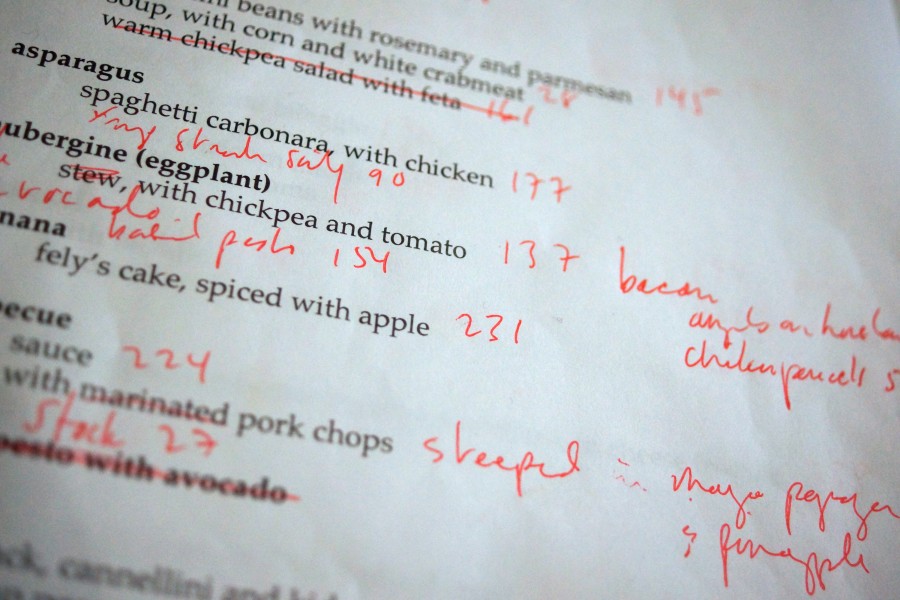 beans with rosemary and parmesan 145
soup, with corn and white crabmeat 28
warm chickpea salad with feta 161
asparagus
spaghetti carbonara, with chicken 177
90
ubergine (eggplant)
stew, with chickpea and tomato 137 bacon
avocado
nana 154
fely's cake, spiced with apple 231
angels on horseba
chicken parcels 5
ecue
sauce 224
with marinated pork chops steeped in mango papaya
& pineapple
Stock 27
pesto with avocado
ck, cannellini and